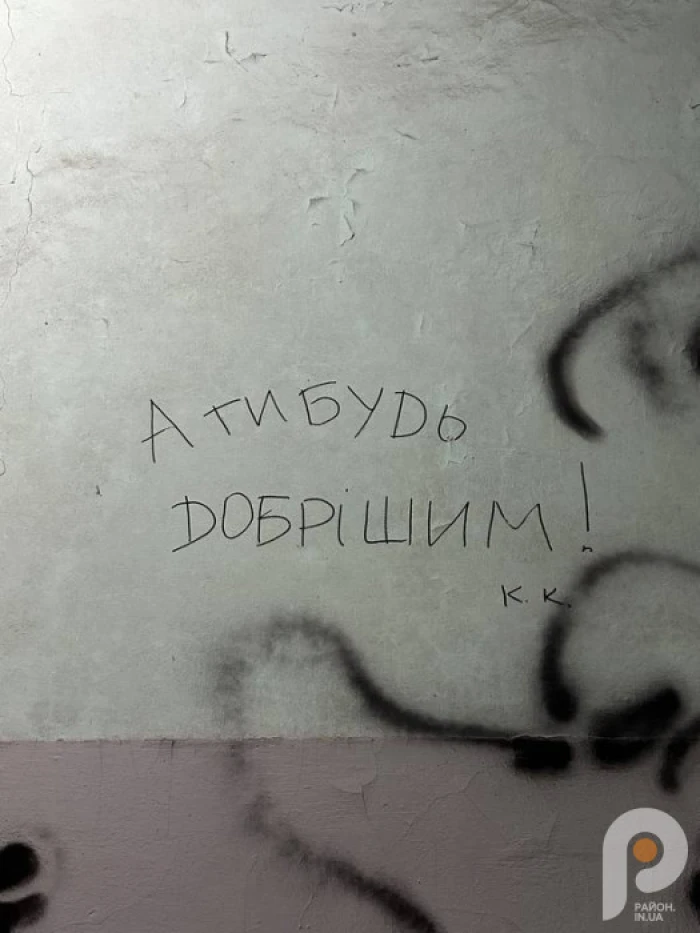 А ти БУДЬ
ДОБРІШИМ!
К. К.
РАЙОН.
IN.UA